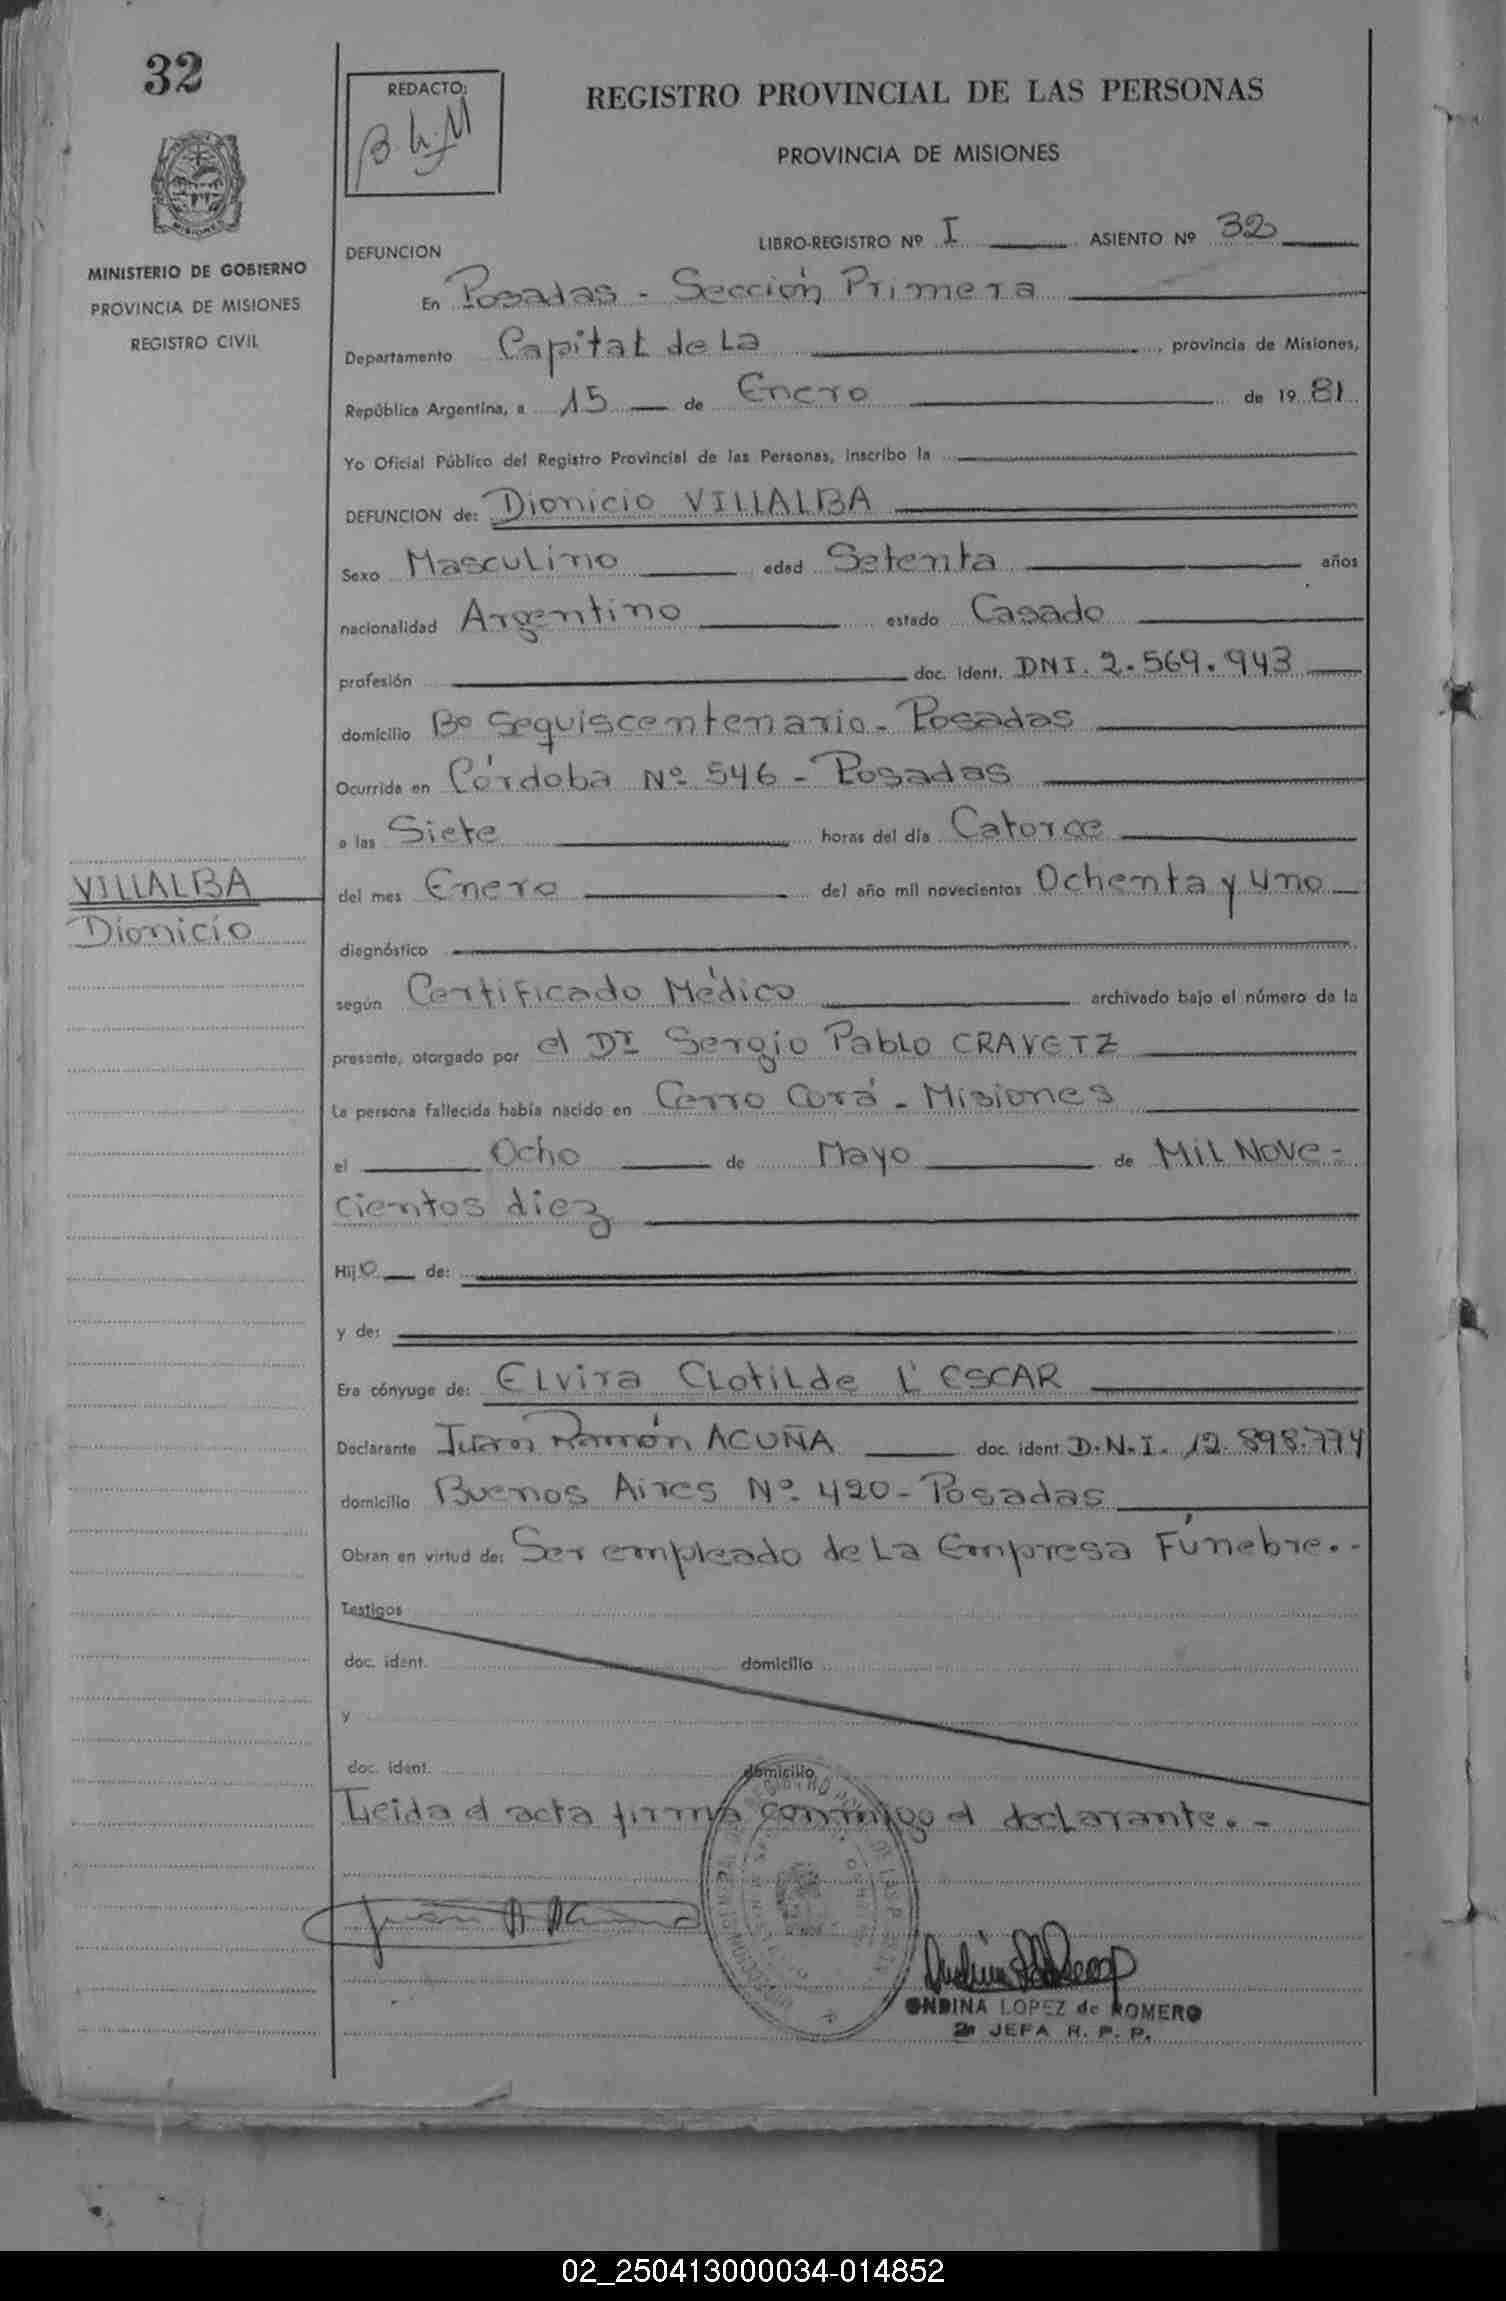 32
REDACTO:
B.L.M
REGISTRO PROVINCIAL DE LAS PERSONAS
PROVINCIA DE MISIONES
MISIONES
MINISTERIO DE GOBIERNO
PROVINCIA DE MISIONES
REGISTRO CIVIL
DEFUNCION
LIBRO-REGISTRO Nº I ASIENTO Nº 32
En Posadas - Sección Primera
Departamento Capital de La , provincia de Misiones,
República Argentina, a 15 de Enero de 1981
Yo Oficial Público del Registro Provincial de las Personas, inscribo la
DEFUNCION de: Dionicio VILLALBA
Sexo Masculino edad Setenta años
nacionalidad Argentino estado Casado
profesión doc. ident. DNI. 2.569.943
domicilio Bº Sequiscentenario - Posadas
Ocurrida en Córdoba Nº 546 - Posadas
a las Siete horas del día Catorce
VILLALBA
Dionicio
del mes Enero del año mil novecientos Ochenta y uno
diagnóstico
según Certificado Médico archivado bajo el número de la
presente, otorgado por el Dr Sergio Pablo CRAVETZ
La persona fallecida había nacido en Cerro Corá - Misiones
el Ocho de Mayo de Mil Nove-
cientos diez
Hijo de:
y de:
Era cónyuge de: Elvira Clotilde L'ESCAR
Declarante Juan Ramón ACUÑA doc. ident. D.N.I. 12.898.774
domicilio Buenos Aires Nº 420 - Posadas
Obran en virtud de: Ser empleado de La Empresa Fúnebre.-
Testigos
doc. ident. domicilio
y
doc. ident. domicilio
Leida el acta firma conmigo el declarante.-
ONDINA LOPEZ de ROMERO
2ª JEFA R. P. P.
02_250413000034-014852